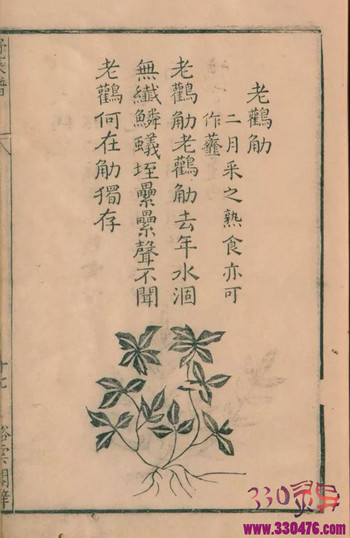 老鸛觔
二月采之熟食亦可
作虀
老鸛觔老鸛觔去年水涸
無纖鱗蟻垤纍纍聲不聞
老鸛何在觔獨存
菜譜
330
www.330476.com